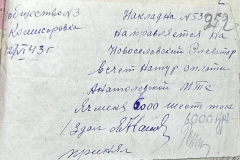 общество №3
Комисаровка
12/VI 43 г
Накладна №53
952
направляется на
Новоселовский Элеватор
в счет Натур оплаты
Анатолевской МТС
Ячменя 6000 шесть тон
6000 кгр
Здал
принял